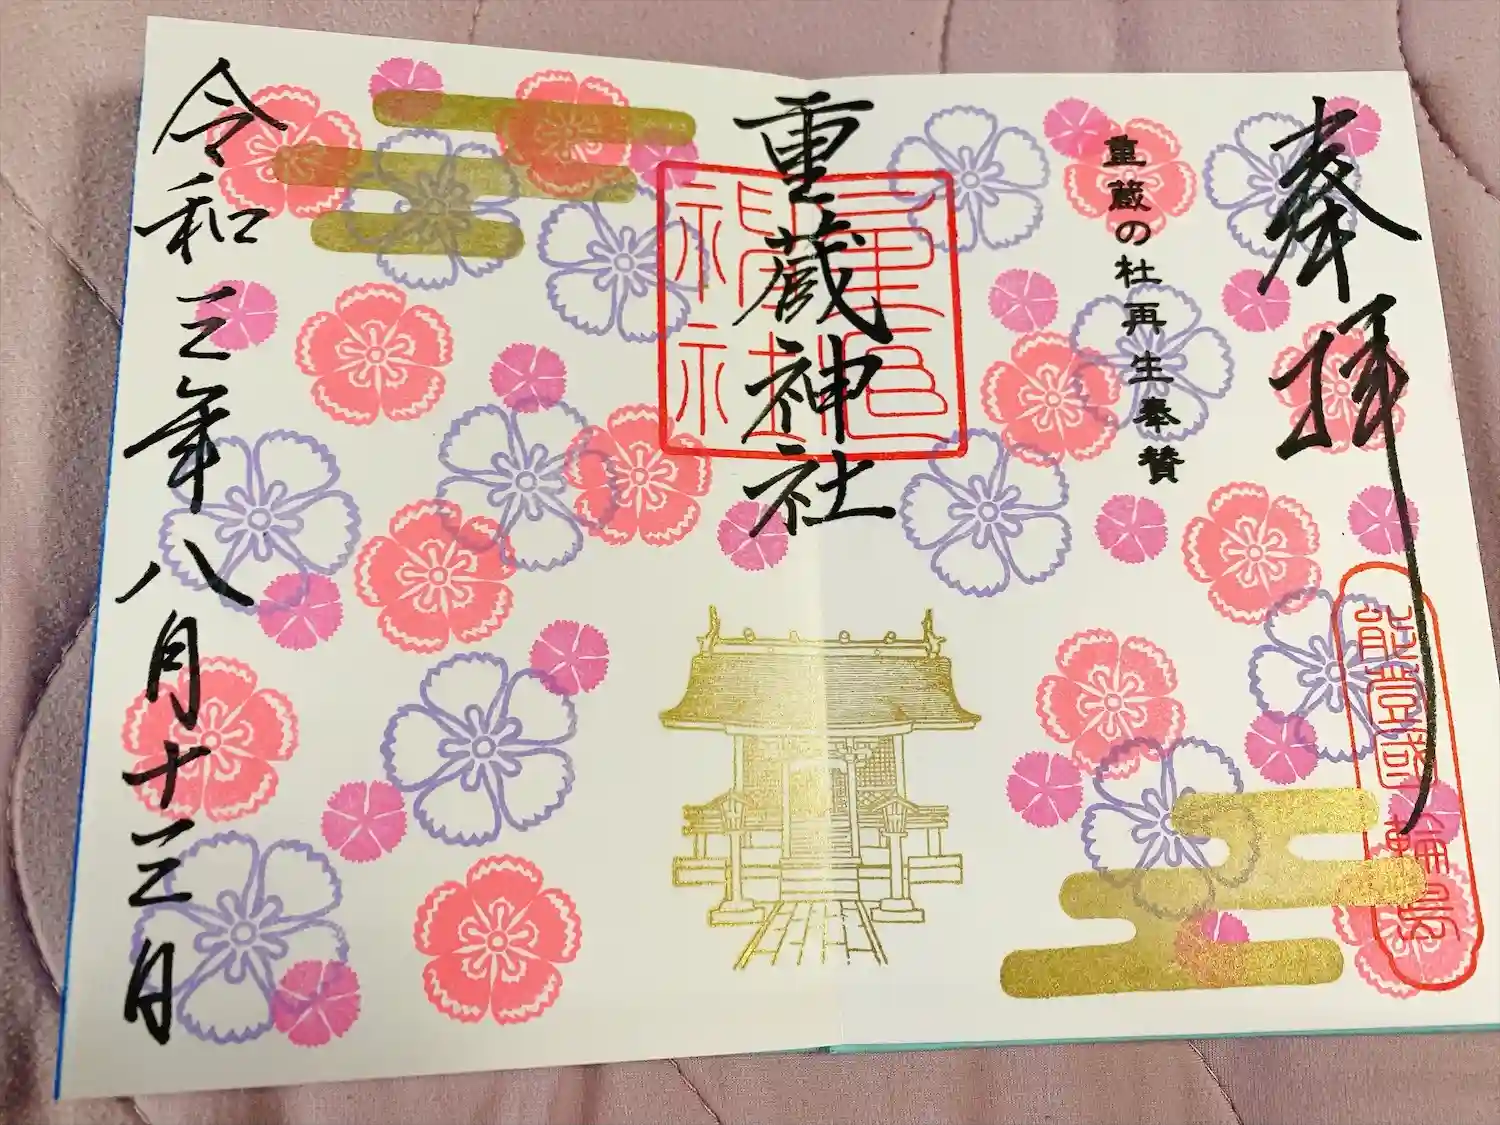 奉拝
能登國輪島
重蔵の杜再生奉賛
重蔵神社
令和三年八月十三日